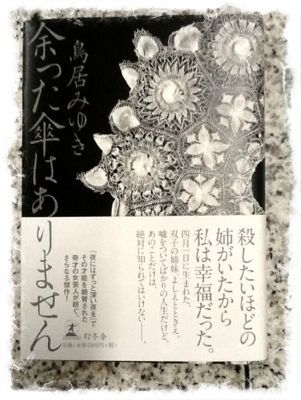 余った傘はありません
鳥居みゆき
殺したいほどの
姉がいたから
私は幸福だった。
四月一日に生まれた、
双子の姉妹、よしえとときえ。
嘘をついてばかりの人生だけど、
あのことだけは、
絶対に知られてはいけない――。
『夜にはずっと深い夜を』で
その才能を絶賛された
奇才の女芸人が紡ぐ、
さらなる傑作!
幻冬舎